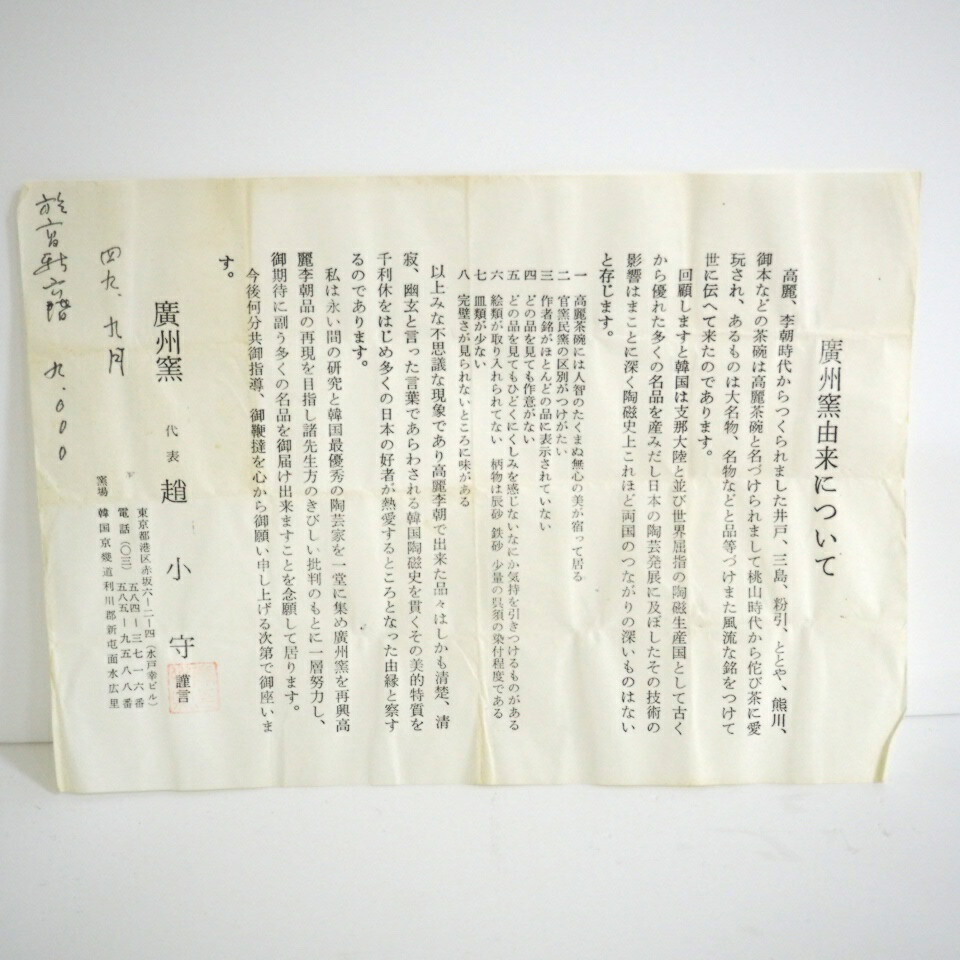 廣州窯由来について
高麗、李朝時代からつくられました井戸、三島、粉引、ととや、熊川、
御本などの茶碗は高麗茶碗と名づけられまして桃山時代から佗び茶に愛
玩され、あるものは大名物、名物などと品等づけまた風流な銘をつけて
世に伝へて来たのであります。
回顧しますと韓国は支那大陸と並び世界屈指の陶磁生産国として古く
から優れた多くの名品を産みだし日本の陶芸発展に及ぼしたその技術の
影響はまことに深く陶磁史上これほど両国のつながりの深いものはない
と存じます。
一 高麗茶碗には人智のたくまぬ無心の美が宿って居る
二 官窯民窯の区別がつけがたい
三 作者銘がほとんどの品に表示されていない
四 どの品を見ても作意がない
五 どの品を見てもひどくにくしみを感じないなにか気持を引きつけるものがある
六 絵類が取り入れられてない 柄物は辰砂 鉄砂 少量の呉須の染付程度である
七 皿類が少ない
八 完璧さが見られないところに味がある
以上みな不思議な現象であり高麗李朝で出来た品々はしかも清楚、清
寂、幽玄と言った言葉であらわされる韓国陶磁史を貫くその美的特質を
千利休をはじめ多くの日本の好者が熱愛するところとなった由縁と察す
るのであります。
私は永い間の研究と韓国最優秀の陶芸家を一堂に集め廣州窯を再興高
麗李朝品の再現を目指し諸先生方のきびしい批判のもとに一層努力し、
御期待に副う多くの名品を御届け出来ますことを念願して居ります。
今後何分共御指導、御鞭撻を心から御願い申し上げる次第で御座いま
す。
廣州窯 代表 趙小守 謹言
東京都港区赤坂六ー二ー四(水戸幸ビル)
電話(〇三) 五八四ー三七一六番
五八五ー九五八八番
窯場 韓国京畿道利川郡新屯面水広里
四九、九月
九.000